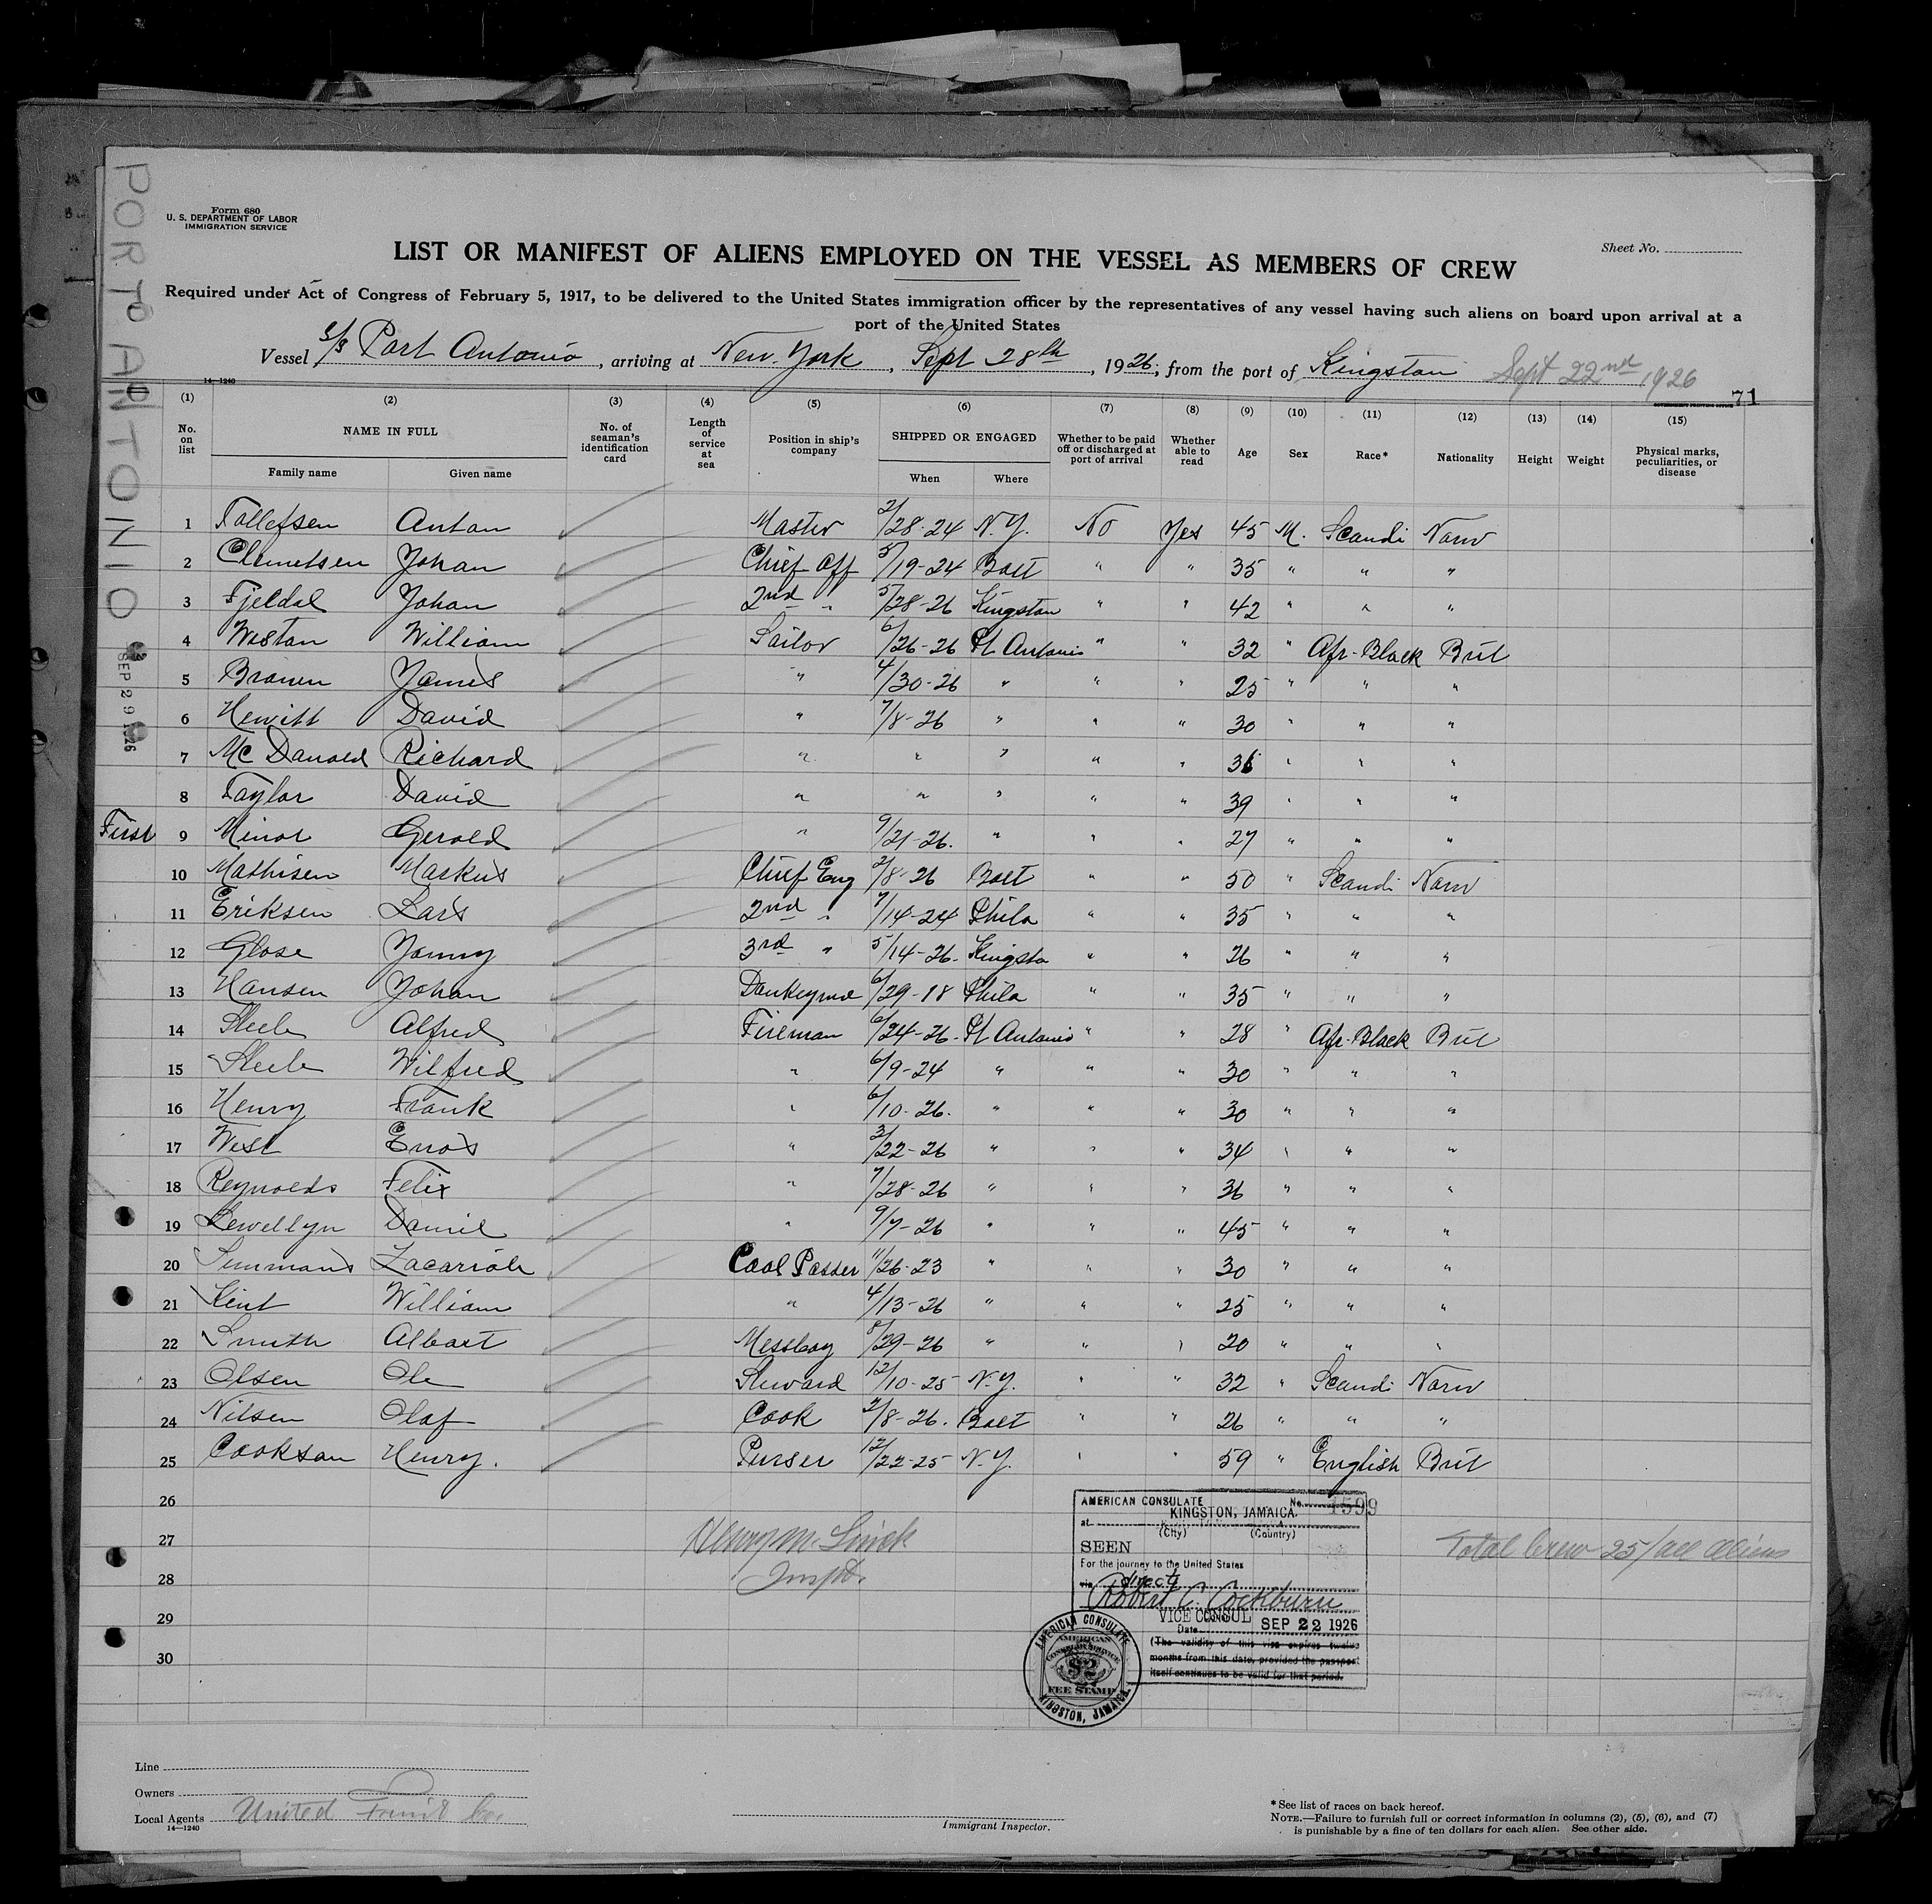 PORT ANTONIO
SEP 29 1926
Form 680
U. S. DEPARTMENT OF LABOR
IMMIGRATION SERVICE
Sheet No.
LIST OR MANIFEST OF ALIENS EMPLOYED ON THE VESSEL AS MEMBERS OF CREW
Required under Act of Congress of February 5, 1917, to be delivered to the United States immigration officer by the representatives of any vessel having such aliens on board upon arrival at a
port of the United States
Vessel S/S Port Antonio, arriving at New York, Sept 28th, 1926, from the port of Kingston Sept 22nd 1926
14—1240
71
(1) (2) (3) (4) (5) (6) (7) (8) (9) (10) (11) (12) (13) (14) (15)
No. on list NAME IN FULL No. of seaman's identification card Length of service at sea Position in ship's company SHIPPED OR ENGAGED Whether to be paid off or discharged at port of arrival Whether able to read Age Sex Race* Nationality Height Weight Physical marks, peculiarities, or disease
Family name Given name When Where
1 Tollefsen Anton Master 2/28-24 N.Y. No Yes 45 M. Scandi Norw
2 Clemetsen Johan Chief Off 5/19-24 Balt " " 35 " " "
3 Fjeldal Johan 2nd " 5/28-26 Kingston " " 42 " " "
4 Weston William Sailor 6/26-26 Pt Antonio " " 32 " Afr-Black Brit
5 Brown James " 4/30-26 " " " 25 " " "
6 Hewitt David " 7/8-26 " " " 30 " " "
7 McDonald Richard " " " " " 36 " " "
8 Taylor David " " " " " 39 " " "
First 9 Minor Gerold " 9/21-26. " " " 27 " " "
10 Mathisen Markus Chief Eng 2/8-26 Balt " " 50 " Scandi Norw
11 Eriksen Lars 2nd " 7/14-24 Phila " " 35 " " "
12 Glose Jonny 3rd " 5/14-26. Kingsto " " 26 " " "
13 Hansen Johan Donkeyma 6/29-18 Phila " " 35 " " "
14 Steele Alfred Fireman 6/24-26. Pt Antonio " " 28 " Afr-Black Brit
15 Steele Wilfred " 6/9-24 " " " 30 " " "
16 Henry Frank " 6/10-26. " " " 30 " " "
17 West Enos " 3/22-26 " " " 34 " " "
18 Reynolds Felix " 7/28-26 " " " 36 " " "
19 Lewellyn Daniel " 9/7-26 " " " 45 " " "
20 Simmons Zacariah Coal Passer 11/26-23 " " " 30 " " "
21 Kent William " 4/13-26 " " " 25 " " "
22 Smith Albert Messboy 8/29-26 " " " 20 " " "
23 Olsen Ole Steward 12/10-25 N.Y. " " 32 " Scandi Norw
24 Nilsen Olaf Cook 2/8-26. Balt " " 26 " " "
25 Cookson Henry. Purser 12/22-25 N.Y. " " 59 " English Brit
26
27
28
29
30
Inspt.
Total Crew 25/all aliens
AMERICAN CONSULATE No. 1599
at KINGSTON, JAMAICA.
(City) (Country)
SEEN
For the journey to the United States
via direct
Robert C. Cockburn
VICE CONSUL
Date SEP 22 1926
(The validity of this visa expires twelve
months from this date, provided the passport
itself continues to be valid for that period.
AMERICAN CONSULATE
AMERICAN
CONSULAR SERVICE
$2
FEE STAMP
KINGSTON, JAMAICA.
Line
Owners
Local Agents United Fruit Co.
14—1240
Immigrant Inspector.
* See list of races on back hereof.
NOTE.—Failure to furnish full or correct information in columns (2), (5), (6), and (7)
is punishable by a fine of ten dollars for each alien. See other side.